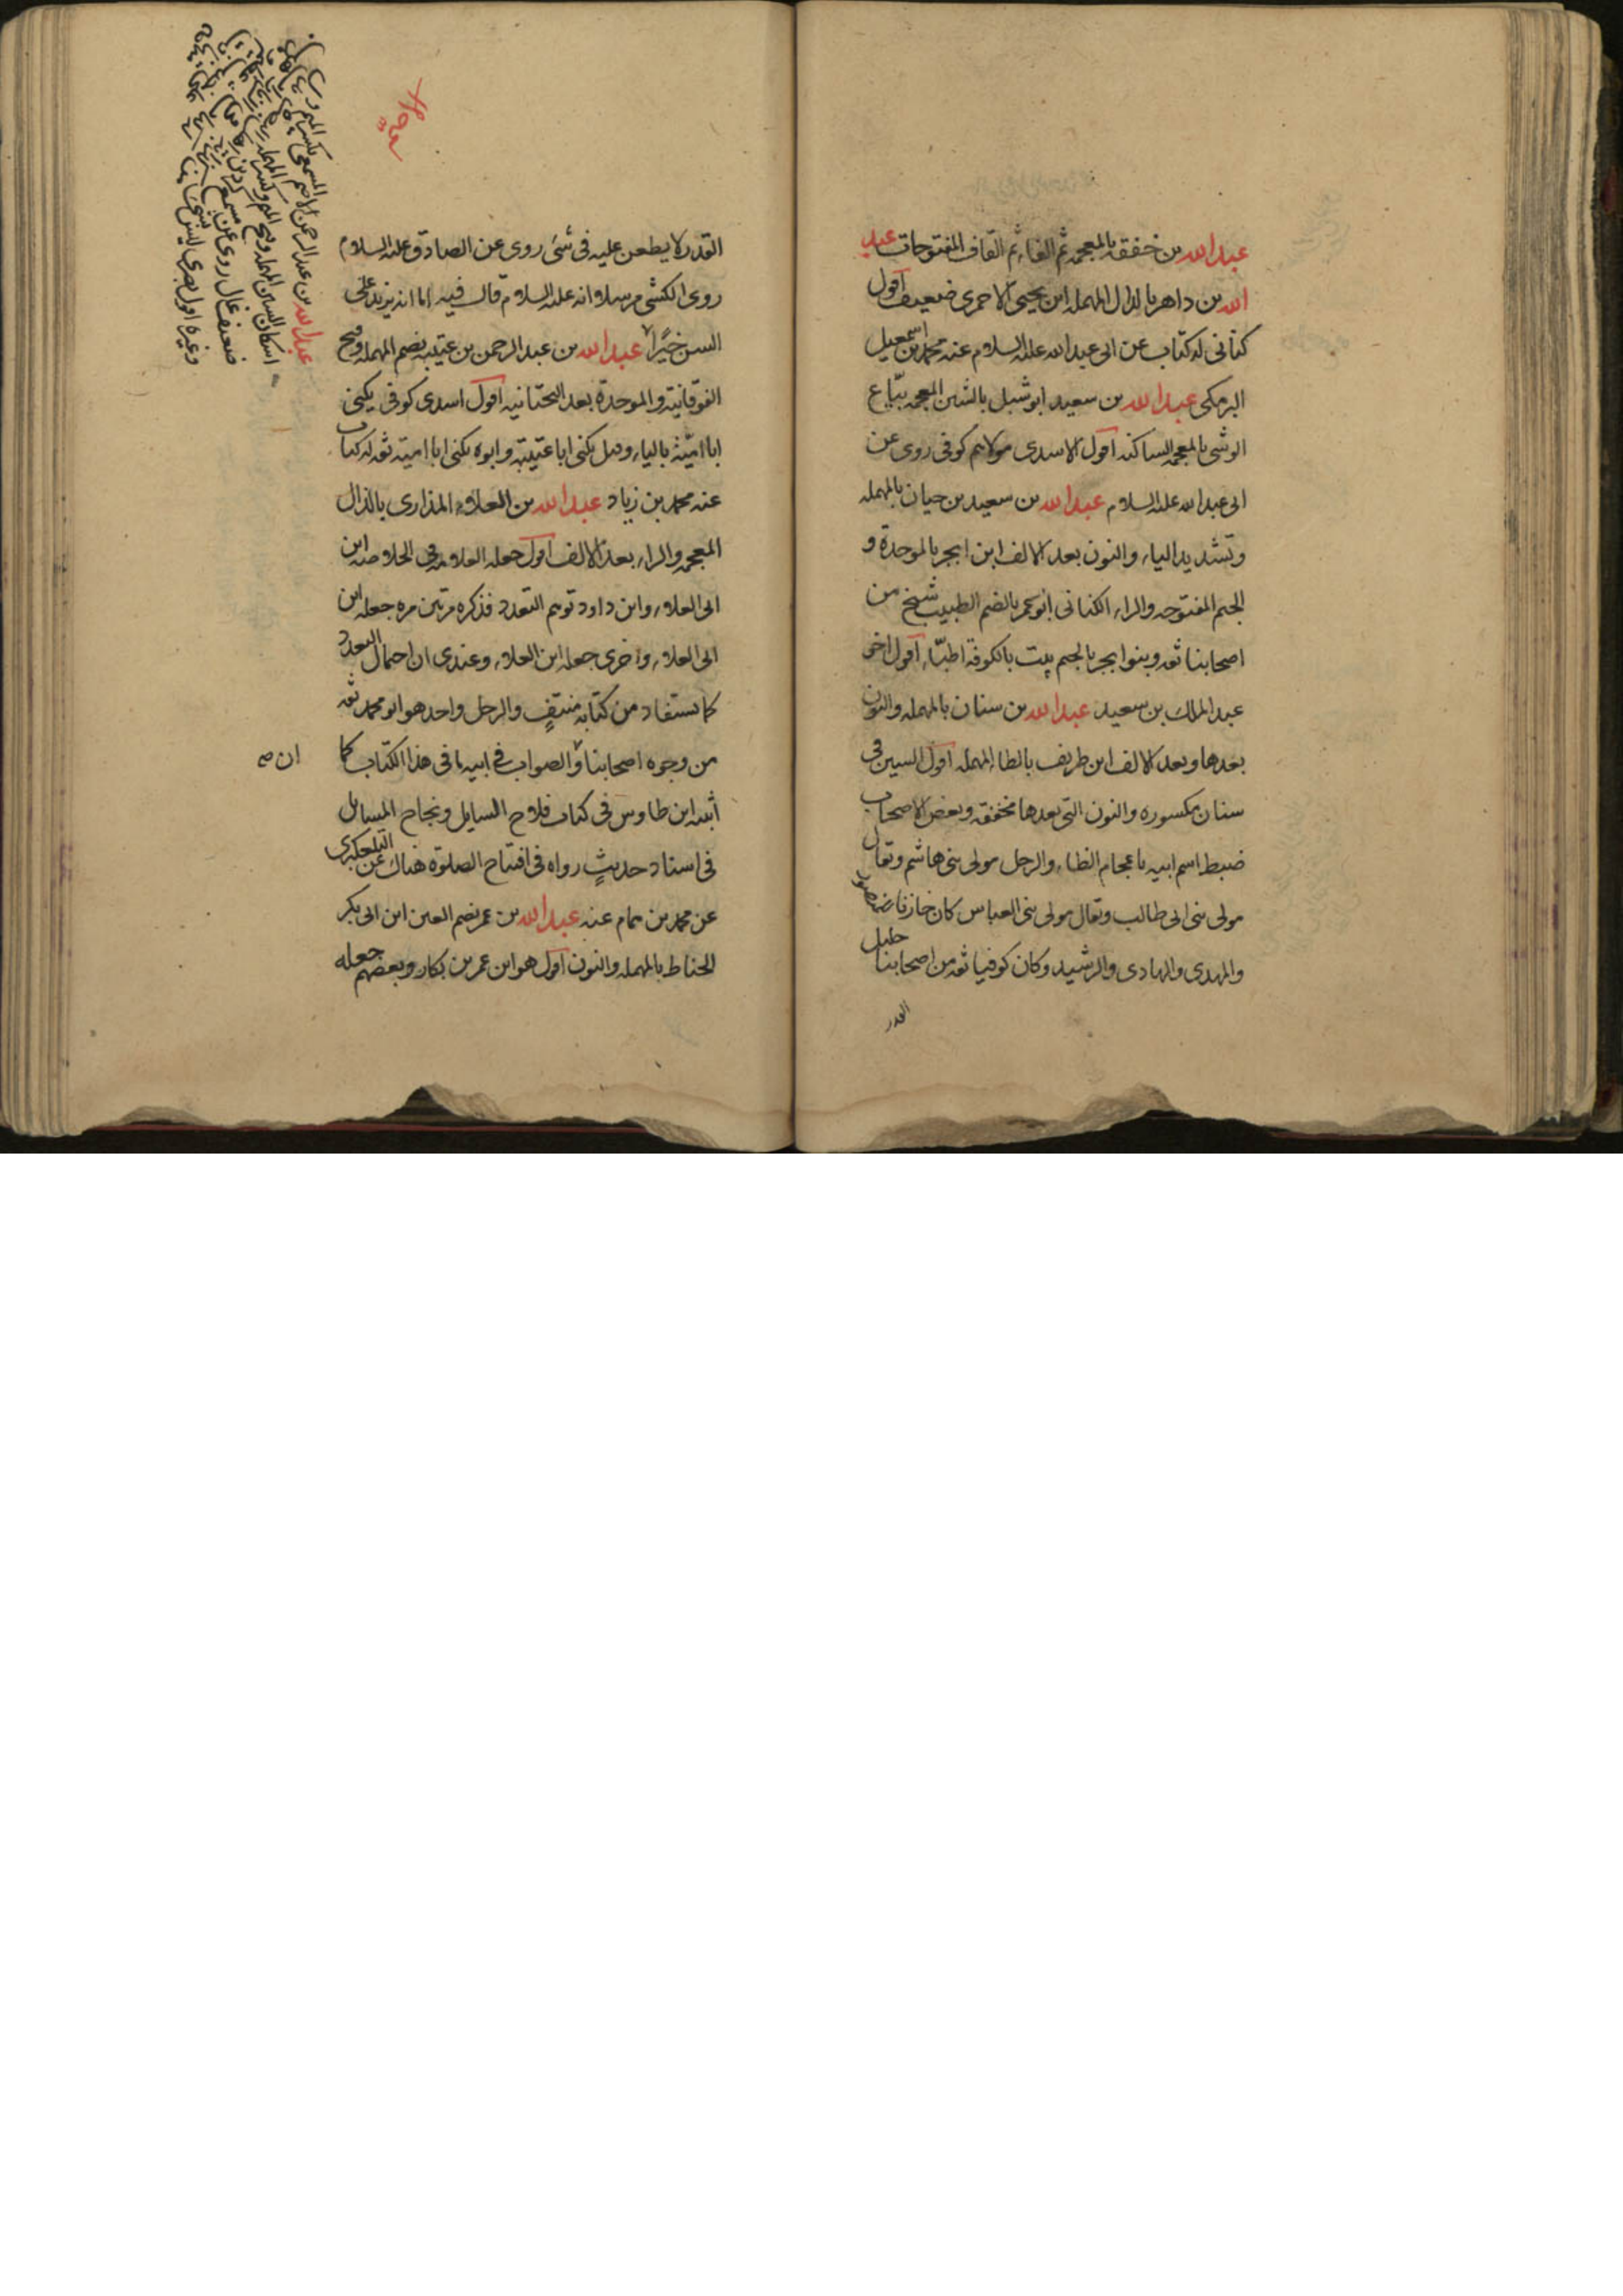 عبد الله بن خفقه بالمعجمه ثم الفاء ثم القاف المفتوحات عبد
الله بن داهر بالدال المهمله ابن يحيى الاحمرى ضعيف اقول
كتانى له كتاب عن ابى عبد الله عليه السلام عنه محمد بن اسمعيل
البرمكى عبد الله بن سعيد ابو شبل بالشين المعجمه بيّاع
الوشى بالمعجمه الساكنه اقول الاسدى مولاهم كوفى روى عن
ابى عبد الله عليه السلام عبد الله بن سعيد بن حيان بالمهمله
وتشديد الياء والنون بعد الالف ابن ابجر بالموحدة و
الجيم المفتوحه والراء الكنانى ابو عمر بالضم الطبيب شيخ من
اصحابنا ثقه وبنوا ابجر بالجيم بيت بالكوفة اطبّاء اقول اخو
عبد الملك بن سعيد عبد الله بن سنان بالمهمله والنون
بعدها وبعد الالف ابن طريف بالطاء المهمله اقول السين فى
سنان مكسوره والنون التى بعدها مخففه وبعض الاصحاب
ضبط اسم ابيه باعجام الظاء والرجل مولى بنى هاشم ويقال
مولى بنى ابى طالب ويقال مولى بنى العباس كان خازنا للمنصور
والمهدى والهادى والرشيد وكان كوفيا ثقه من اصحابنا جليل
القدر
القدر لا يطعن عليه فى شئ روى عن الصادق عليه السلام
روى الكشى مرسلا انه عليه السلام قال فيه اما انه يزيد على
السن خيرًا عبد الله بن عبد الرحمن بن عتيبه بضم المهمله وفتح
الفوقانية والموحدة بعد التحتانيه اقول اسدى كوفى يكنى
ابا اميّة بالياء وقيل يكنى ابا عتيبة وابوه يكنى ابا امية ثقه له كتاب
عنه محمد بن زياد عبد الله بن العلاء المذارى بالذال
المعجمه والراء بعد الالف اقول جعله العلامه فى الخلاصه ابن
ابى العلاء وابن داود توهم التعدد فذكره مرتين مره جعله ابن
ابى العلاء واخرى جعله ابن العلاء وعندى ان احتمال التعدد
كما يستفاد من كتابه منتفٍ والرجل واحد هو ابو محمد ثقه
من وجوه اصحابنا والصواب فى ابيه ما فى هذا الكتاب كما
ان صح
أثبته ابن طاوس فى كتاب فلاح السايل ونجاح المسايل
فى اسناد حديثٍ رواه فى افتتاح الصلوة هناك عن التلعكبرى
عن محمد بن همام عنه عبد الله بن عمر بضم العين ابن ابى بكر
الحناط بالمهمله والنون اقول هو ابن عمر بن بكار وبعضهم جعله
عبد الله بن عبد الرحمن الاصم المسمعى بكسر الميم و
اسكان السين المهمله وفتح الميم وكسر العين المهمله
ضعيف غال روى عن مسمع كردين
وغيره اقول بصرى ليس بشئ